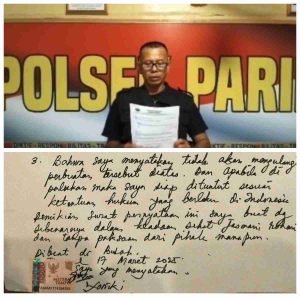 POLSE PARI
3. Bahwa saya menyatikan tidak akan mengulang
perbuatan tersebut diatas. Dan apabila di
palukan maka saya siap dituntut sesuai
ketentuan hukum yang berlaku di Indonesia
Demikian surat pernyataan ini saya buat dg
sebenarnya dalam keadaan sehat jasmani rohani
dan tanpa paksaan dari pihak manapun.
Dibuat di
17 Maret 2025
Saya yang menyatakan